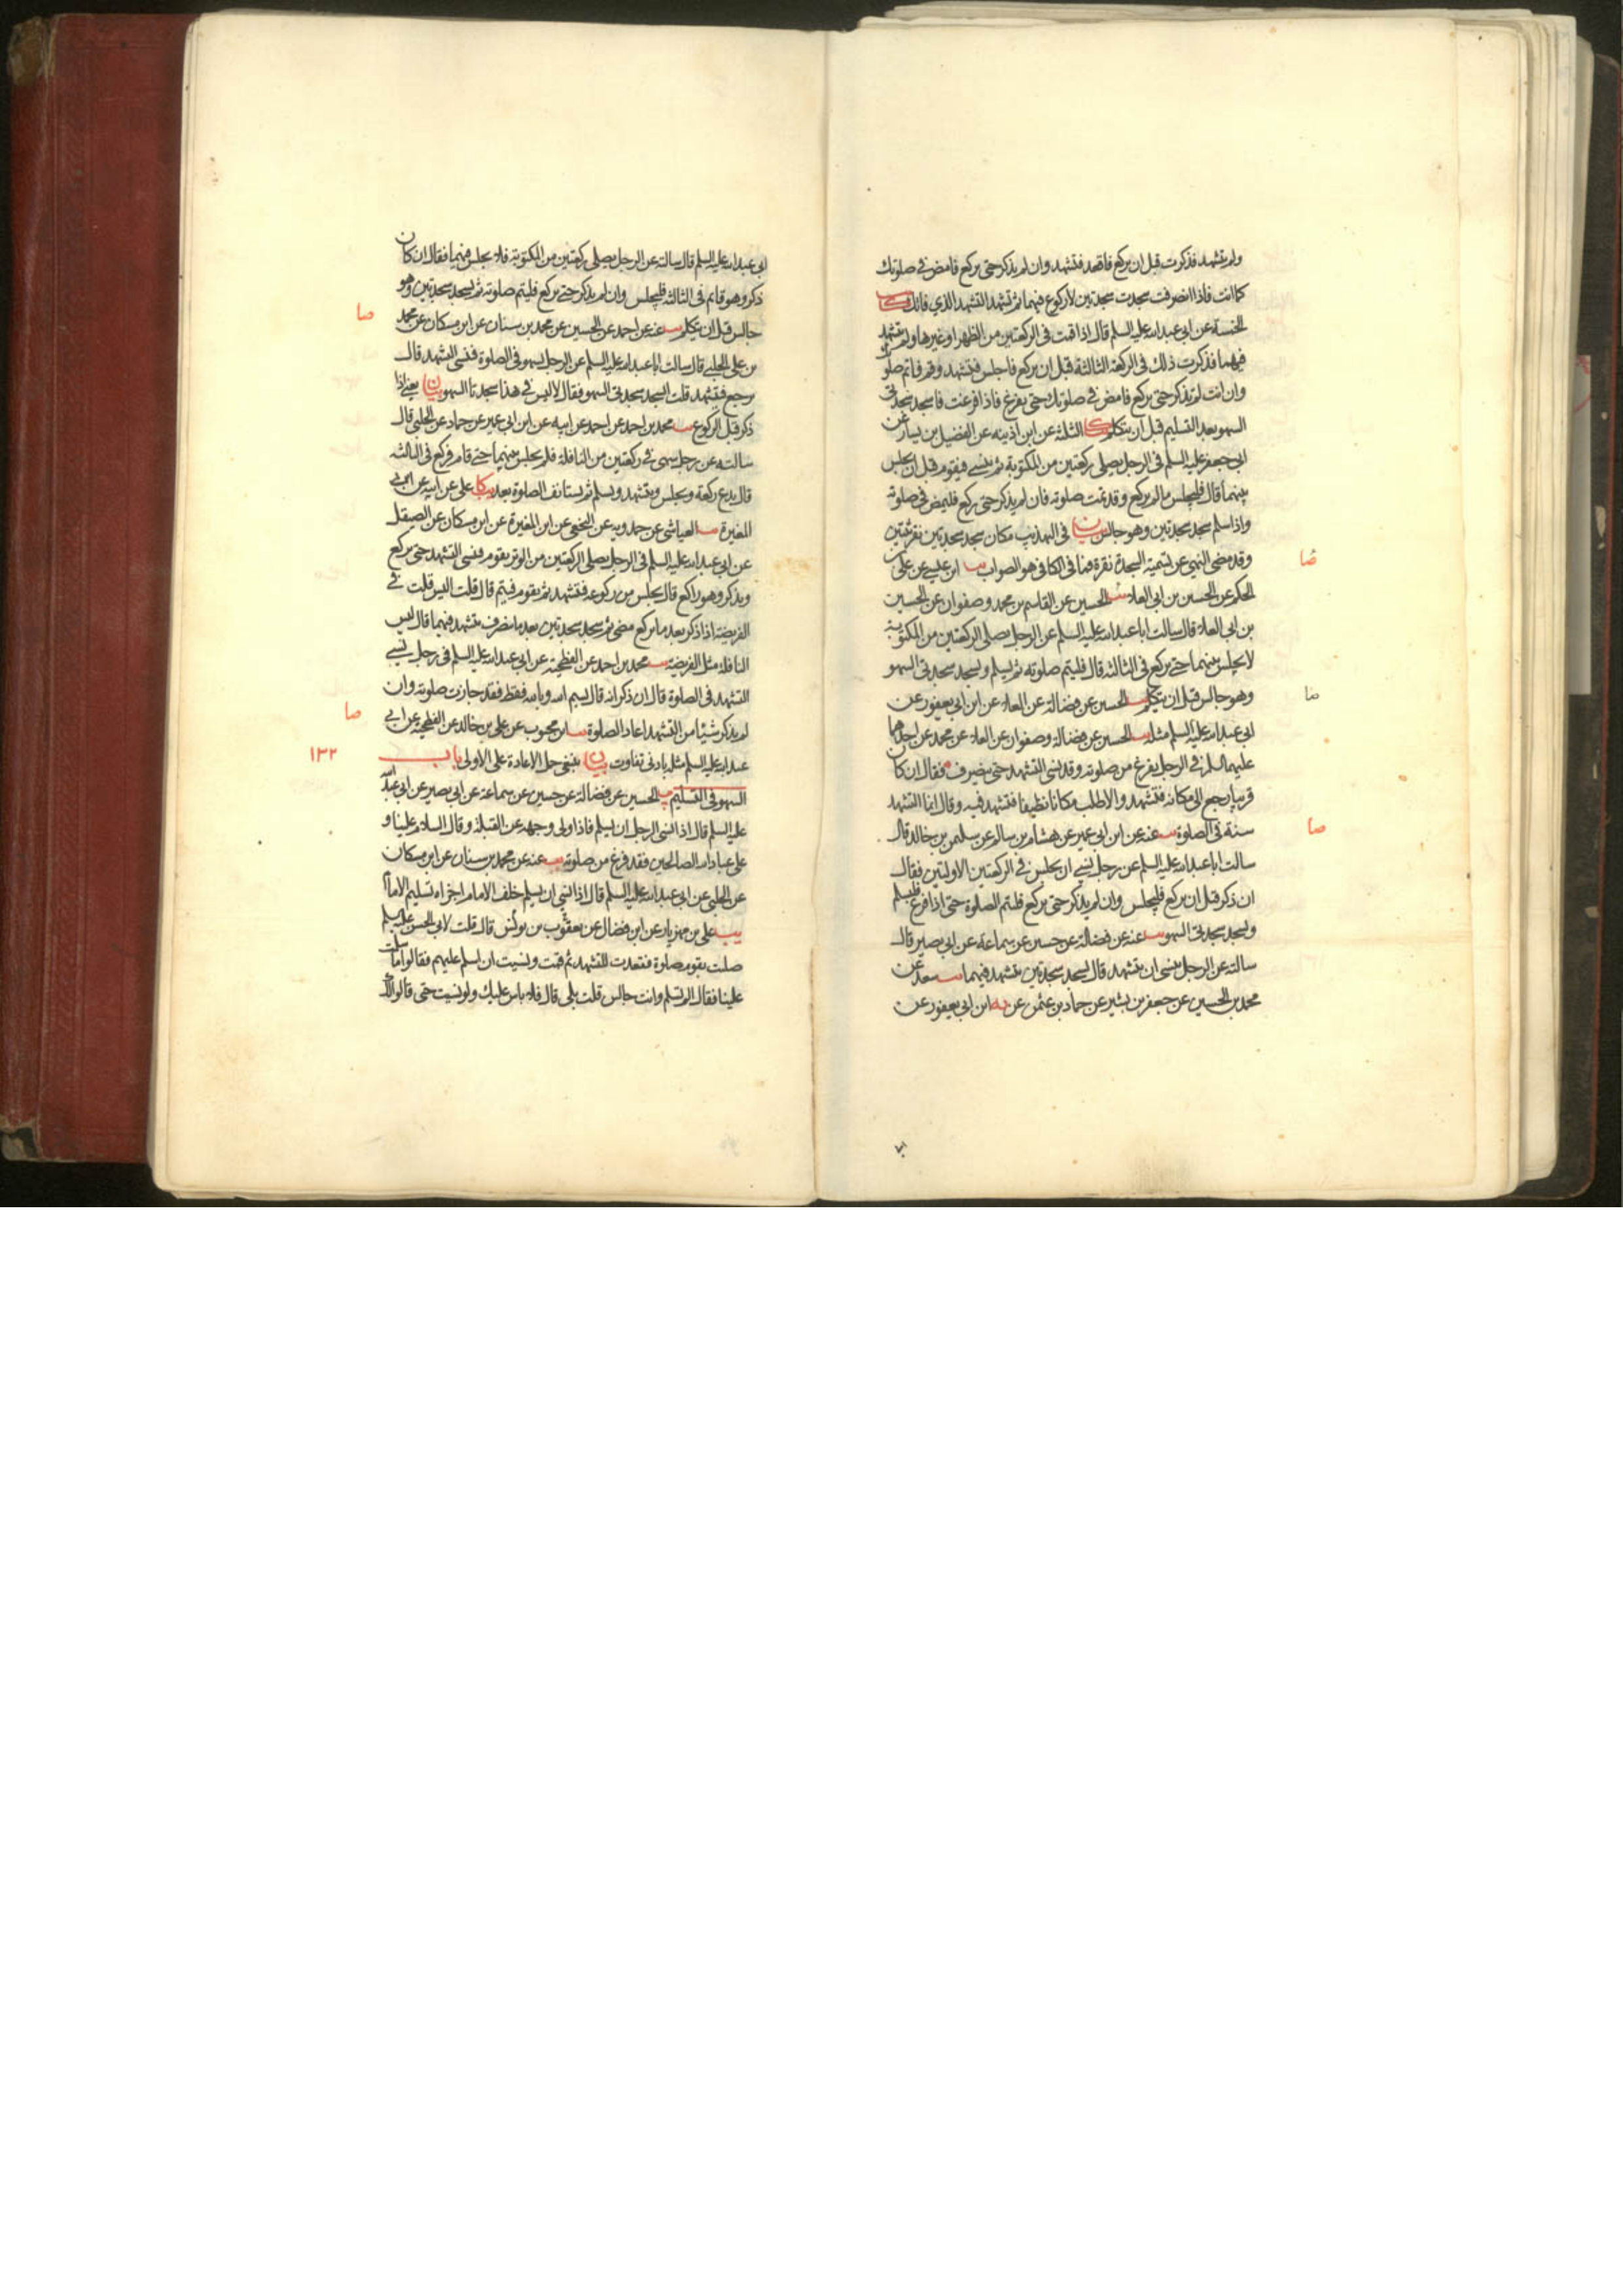 ولم تتشهد فذكرت قبل ان تركع فاقعد فتشهد وان لم تذكر حتى تركع فامض في صلوتك
كما انت فاذا انصرفت سجدت سجدتين لا ركوع فيهما ثم تشهد التشهد الذي فاتك
الخمسة عن ابي عبد الله عليه السلم قال اذا قمت في الركعتين من الظهر او غيرها ولم تتشهد
فيهما فذكرت ذلك في الركعة الثالثة قبل ان تركع فاجلس فتشهد وقم فاتم صلوتك
وان انت لم تذكر حتى تركع فامض في صلوتك حتى تفرغ فاذا فرغت فاسجد سجدتي
السهو بعد التسليم قبل ان تتكلم كا الثلثة عن ابن اذينه عن الفضيل بن يسار عن
ابي جعفر عليه السلم في الرجل يصلي ركعتين من المكتوبة ثم ينسى فيقوم قبل ان يجلس
بينهما قال فليجلس ما لم يركع وقد تمت صلوته فان لم يذكر حتى ركع فليمض في صلوته
واذا سلم سجد سجدتين وهو جالس بيان في التهذيب مكان سجد سجدتين نقر ثنتين
وقد مضى النهي عن تسمية السجدة نقرة فما في الكافي هو الصواب يب ابن عيسى عن علي بن
الحكم عن الحسين بن ابي العلاء يب الحسين عن القاسم بن محمد وصفوان عن الحسين
بن ابي العلاء قال سالت ابا عبد الله عليه السلم عن الرجل يصلي الركعتين من المكتوبة
لا يجلس بينهما حتى يركع في الثالثة قال فليتم صلوته ثم يسلم ويسجد سجدتي السهو
وهو جالس قبل ان يتكلم يب الحسين عن فضالة عن العلاء عن ابن ابي يعفور عن
ابي عبد الله عليه السلم مثله يب الحسين عن فضالة وصفوان عن العلاء عن محمد عن احدهما
عليهما السلم في الرجل يفرغ من صلوته وقد نسي التشهد حتى ينصرف فقال ان كان
قريبا رجع الى مكانه فتشهد والا طلب مكانا نظيفا فتشهد فيه وقال انما التشهد
سنة في الصلوة يب عنه عن ابن ابي عمير عن هشام بن سالم عن سليمن بن خالد قال
سالت ابا عبد الله عليه السلم عن رجل نسي ان يجلس في الركعتين الاولتين فقال
ان ذكر قبل ان يركع فليجلس وان لم يذكر حتى يركع فليتم الصلوة حتى اذا فرغ فليسلم
وليسجد سجدتي السهو يب عنه عن فضالة عن حسين عن سماعة عن ابي بصير قال
سالته عن الرجل ينسى ان يتشهد قال يسجد سجدتين يتشهد فيهما يب سعد عن
محمد بن الحسين عن جعفر بن بشير عن حماد بن عثمن عن يه ابن ابي يعفور عن
صا
صا
صا
ابي عبد الله عليه السلم قال سالته عن الرجل يصلي ركعتين من المكتوبة فلا يجلس فيهما فقال ان كان
ذكر وهو قائم في الثالثة فليجلس وان لم يذكر حتى يركع فليتم صلوته ثم يسجد سجدتين وهو
جالس قبل ان يتكلم يب عنه عن احمد عن الحسين عن محمد بن سنان عن ابن مسكان عن محمد
بن علي الحلبي قال سالت ابا عبد الله عليه السلم عن الرجل يسهو في الصلوة فنسي التشهد قال
يرجع فيتشهد قلت ايسجد سجدتي السهو فقال لا ليس في هذا سجدتا السهو بيان يعني اذا
ذكر قبل الركوع يب محمد بن احمد عن احمد عن ابيه عن ابن ابي عمير عن حماد عن الحلبي قال
سالته عن رجل سهى في ركعتين من النافلة فلم يجلس بينهما حتى قام فركع في الثالثة
قال يدع ركعة ويجلس ويتشهد ويسلم ثم يستانف الصلوة بعد كا علي عن ابيه عن ابن
المغيرة يب العياشي عن حمدويه عن النخعي عن ابن المغيرة عن ابن مسكان عن الصيقل
عن ابي عبد الله عليه السلم في الرجل يصلي الركعتين من الوتر يقوم فنسي التشهد حتى يركع
ويذكر وهو راكع قال يجلس من ركوعه فيتشهد ثم يقوم فيتم قال قلت اليس قلت في
الفريضة اذا ذكر بعد ما يركع مضى ثم سجد سجدتين بعد ما ينصرف يتشهد فيهما قال ليس
النافلة مثل الفريضة يب محمد بن احمد عن الفطحية عن ابي عبد الله عليه السلم في رجل نسي
التشهد في الصلوة قال ان ذكر انه قال بسم الله وبالله فقط فقد جازت صلوته وان
لم يذكر شيئا من التشهد اعاد الصلوة يب ابن محبوب عن علي بن خالد عن الفطحية عن ابي
عبد الله عليه السلم مثله بادنى تفاوت بيان ينبغي حمل الاعادة على الاولى باب
السهو في التسليم يب الحسين عن فضالة عن حسين عن سماعة عن ابي بصير عن ابي عبد الله
عليه السلم قال اذا نسي الرجل ان يسلم فاذا ولى وجهه عن القبلة وقال السلام علينا و
على عباد الله الصالحين فقد فرغ من صلوته يب عنه عن محمد بن سنان عن ابن مسكان
عن الحلبي عن ابي عبد الله عليه السلم قال اذا نسي ان يسلم خلف الامام اجزاه تسليم الامام
يب علي بن مهزيار عن ابن فضال عن يعقوب بن يونس قال قلت لابي الحسن عليه السلم
صليت بقوم صلوة فقعدت للتشهد ثم قمت ونسيت ان اسلم عليهم فقالوا ما سلمت
علينا فقال الم تسلم وانت جالس قلت بلى قال فلا باس عليك ولو نسيت حتى قالوا لك
صا
صا
١٣٢